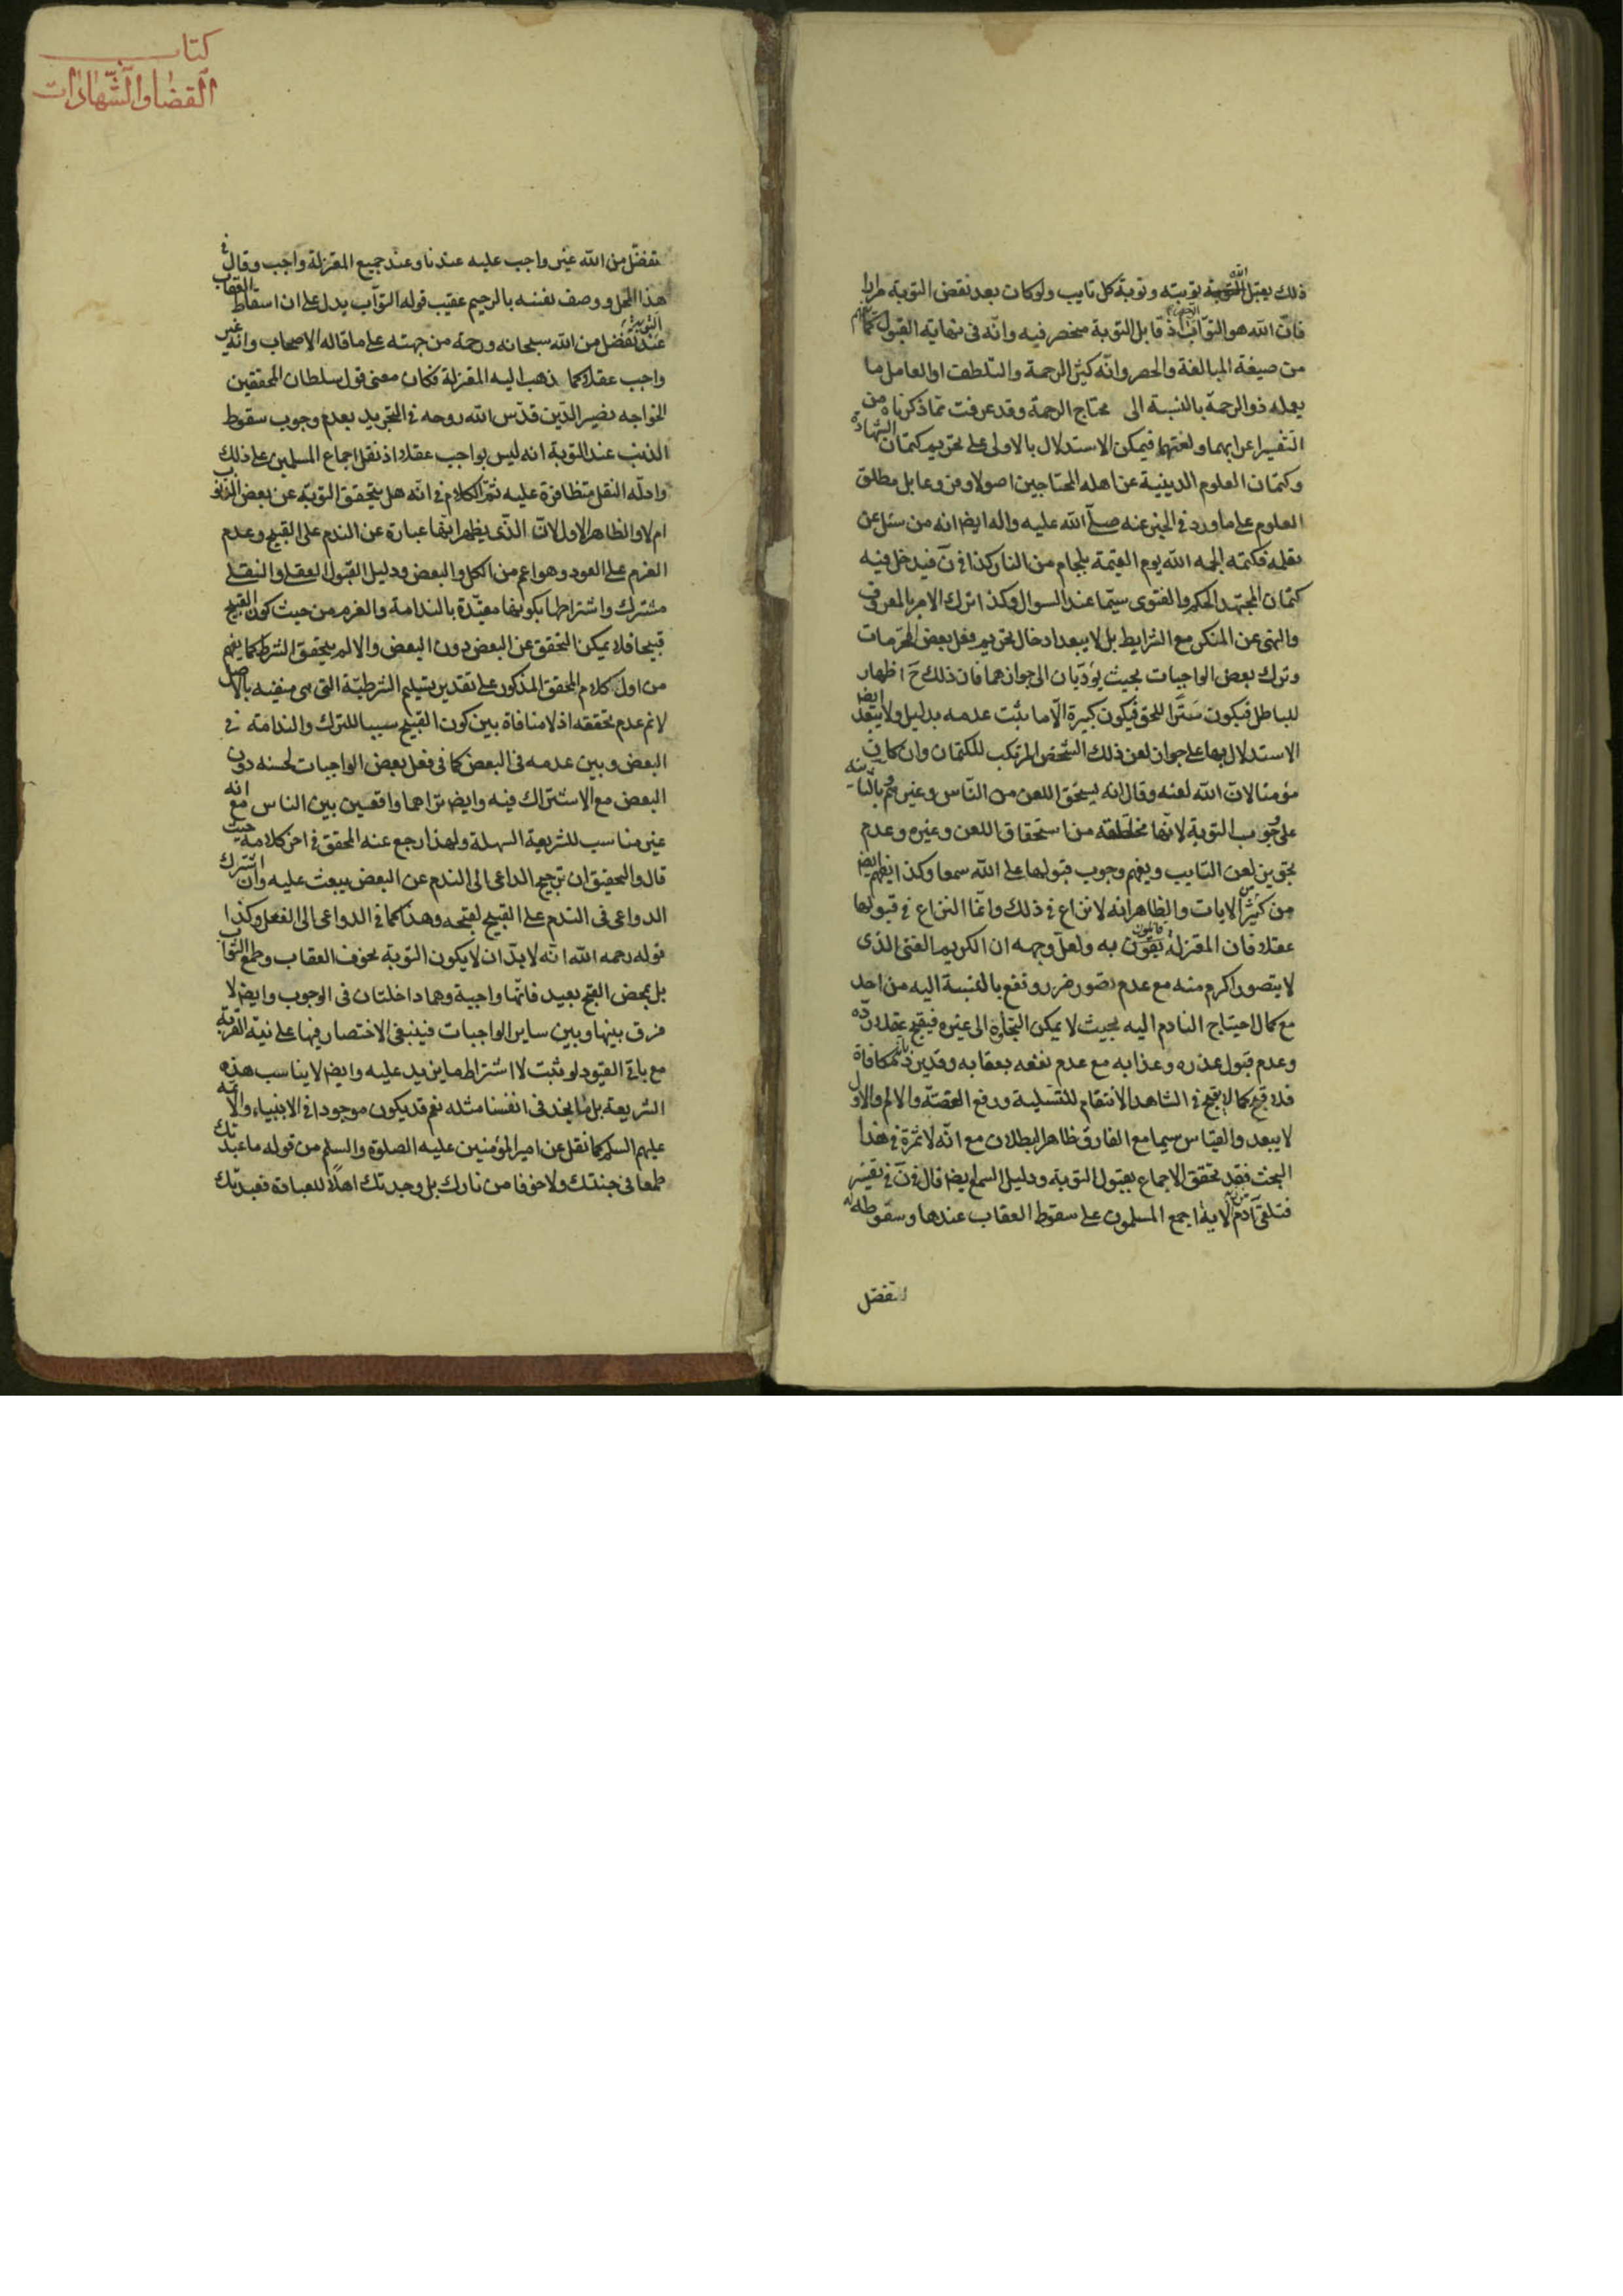 ذلك يقبل الله توبته وتوبة كل تايب ولو كان بعد نقض التوبة مرارا
فان الله هو التواب الرحيم اذ قابل التوبة منحصر فيه وانه فى نهاية القبول كما يفهم
من صيغة المبالغة والحصر وانه كثير الرحمة والتلطف او العامل ما
يعمله ذو الرحمة بالنسبة الى محتاج الرحمة وقد عرفت مما ذكرناه من
التفسير اعرابهما ولغتهما فيمكن الاستدلال بالاولى على تحريم كتمان الشهادة
وكتمان العلوم الدينية عن اهله المحتاجين اصولا وفروعا بل مطلق
العلوم على ما ورد فى الخبر عنه صلى الله عليه واله ايضا انه من سئل عن
يعلمه فكتمه الجمه الله يوم القيمة بلجام من النار كذا فى ن فيدخل فيه
كتمان المجتهد الحكم والفتوى سيما عند السوال وكذا ترك الامر بالمعروف
والنهى عن المنكر مع الشرايط بل لا يبعد ادخال تحريم فعل بعض المحرمات
وترك بعض الواجبات بحيث يؤديان الى جوازهما فان ذلك ح اظهار
للباطل فيكون سترا للحق فيكون كبيرة الا ما يثبت عدمه بدليل ولا يبعد ايض
الاستدلال بها على جواز لعن ذلك الشخص المرتكب للكتمان وان كان
مؤمنا لان الله لعنه وقال انه يستحق اللعن من الناس وغيرهم بالثانية
على وجوب التوبة لانها مخلصة من استحقاق اللعن وغيره وعدم
تجويز لعن التايب ويفهم وجوب قبولها على الله سمعا وكذا يفهم ايض
من كثير من الايات والظاهر انه لا نزاع فى ذلك وانما النزاع فى قبولها
عقلا فان المعتزلة قائلون به ولعل وجهه ان الكريم الغنى الذى
لا يتصور اكرم منه مع عدم تصور ضرر ونفع بالنسبة اليه من احد
مع كمال احتياج النادم اليه بحيث لا يمكن التجاؤه الى غيره فيقبح عقلا رده
وعدم قبول عذره وعذابه مع عدم نفعه بعقابه وقد يرد بانه مكافاة
فلا قبح كما لا يقبح فى الشاهد الانتقام للتسلية ودفع الغصة والالم والاول
لا يبعد والقياس سيما مع الفارق ظاهر البطلان مع انه لا ثمرة فى هذا
البحث فقد تحقق الاجماع بقبول التوبة ودليل السمع ايضا قال فى ن فى تفسير
فتلقى آدم من ربه الاية اجمع المسلمون على سقوط العقاب عندها وسقوطه
تفضل
كتاب
القضا والشهادات
تفضل من الله غير واجب عليه عندنا وعند جميع المعتزلة واجب وقال فى
هذا المحل ووصف نفسه بالرحيم عقيب قوله التواب يدل على ان اسقاط العقاب
عند التوبة تفضل من الله سبحانه ورحمة من جهته على ما قاله الاصحاب وانه غير
واجب عقلا كما ذهب اليه المعتزلة فكان معنى قول سلطان المحققين
الخواجه نصير الدين قدس الله روحه فى التجريد بعدم وجوب سقوط
الذنب عند التوبة انه ليس بواجب عقلا اذ نقل اجماع المسلمين على ذلك
وادلة النقل متظافرة عليه ثم الكلام فى انه هل يتحقق التوبة عن بعض الذنوب
ام لا والظاهر الاول لان الذى يظهر انها عبارة عن الندم على القبيح وعدم
العزم على العود وهو اعم من الكل والبعض ودليل القبول العقلى والنقلى
مشترك واشتراطها بكونها مقيدة بالندامة والعزم من حيث كون القبيح
قبيحا فلا يمكن التحقق عن البعض دون البعض والا لم يتحقق الشرط كما يفهم
من اول كلام المحقق المذكور على تقدير تسليم الشرطية التى هى منفية بالاصل
لا نم عدم تحققه اذ لا منافاة بين كون القبيح سببا للترك والندامة فى
البعض وبين عدمه فى البعض كما فى فعل بعض الواجبات لحسنه دون
البعض مع الاشتراك فيه وايض تراهما واقعين بين الناس مع انه
غير مناسب للشريعة السهلة ولهذا رجع عنه المحقق فى اخر كلامه حيث
قال والتحقيق ان ترجيح الداعى الى الندم عن البعض يبعث عليه وان اشترك
الدواعى فى الندم على القبيح لقبحه وهذا كما فى الدواعى الى الفعل وكذا
قوله رحمه الله انه لا بد ان لا يكون التوبة لخوف العقاب وطمع الثواب
بل لمحض القبح بعيد فانها واجبة وهما داخلتان فى الوجوب وايض لا
فرق بينها وبين ساير الواجبات فينبغى الاختصار فيها على نية القربة
مع باقى القيود لو ثبت لا اشتراط ما يزيد عليه وايض لا يناسب هذه
الشريعة بل ما يجد فى انفسنا مثله نعم قد يكون موجودا فى الانبياء والائمة
عليهم السلم كما نقل عن امير المؤمنين عليه الصلوة والسلم من قوله ما عبدتك
طمعا فى جنتك ولا خوفا من نارك بل وجدتك اهلا للعبادة فعبدتك